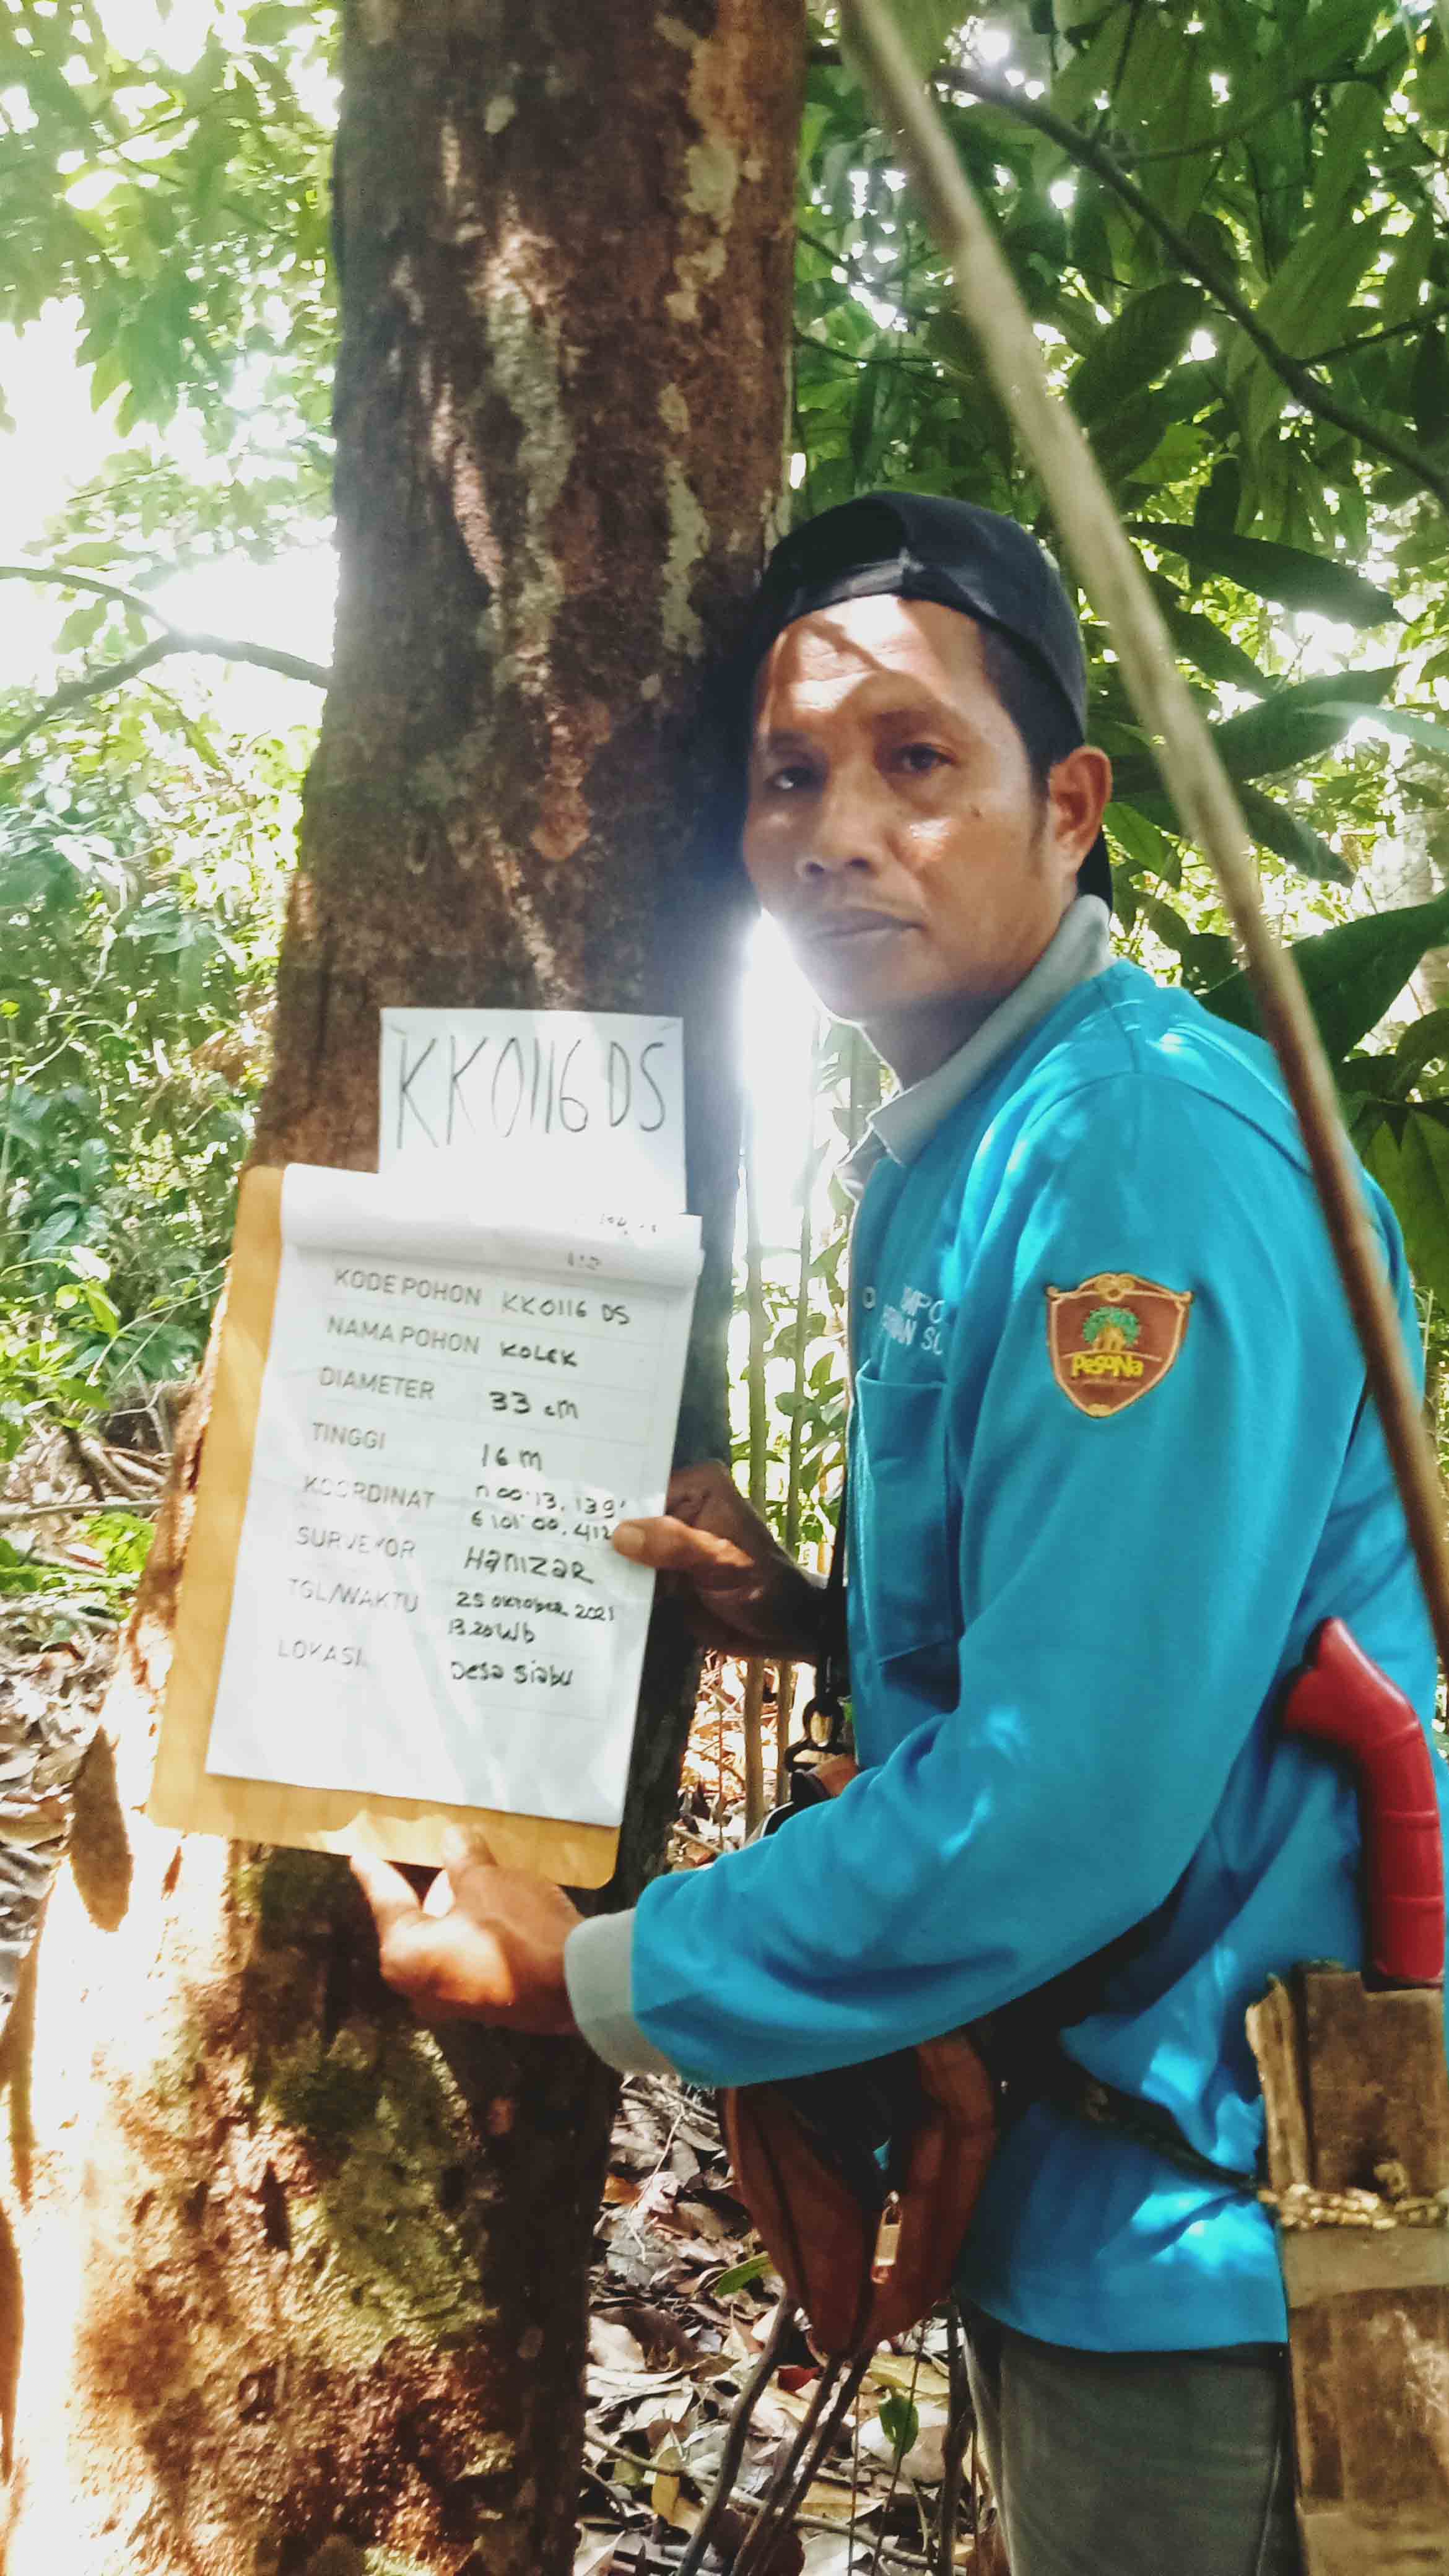 KK0116 DS
KODE POHON KK0116 DS
NAMA POHON KOLEK
DIAMETER 33 cm
TINGGI 16 m
KOORDINAT n 00°13.139'
E 101°00.412
SURVEYOR HanizaR
TGL/WAKTU 25 oktober 2021
13.20 Wib
LOKASI Desa Siabu
PeSoNa